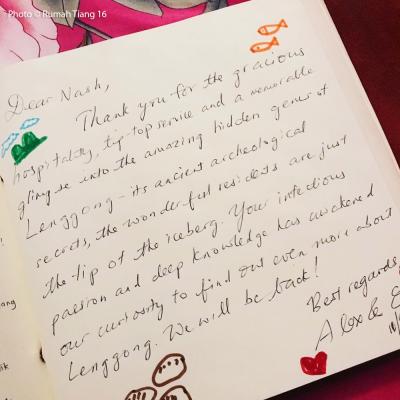 Photo © Rumah Tiang 16
Dear Nash,
Thank you for the gracious
hospitality, tip-top service and a memorable
glimpse into the amazing hidden gems of
Lenggong - its ancient archeological
secrets, the wonderful residents are just
the tip of the iceberg. Your infectious
passion and deep knowledge has awakened
our curiosity to find out even more about
Lenggong. We will be back!
Best regards,
Alex &